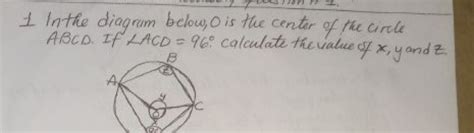 1 In the diagram below, O is the center of the circle
ABCD. If ∠ACD = 96° calculate the value of x, y and z.
B
z
A
y
C